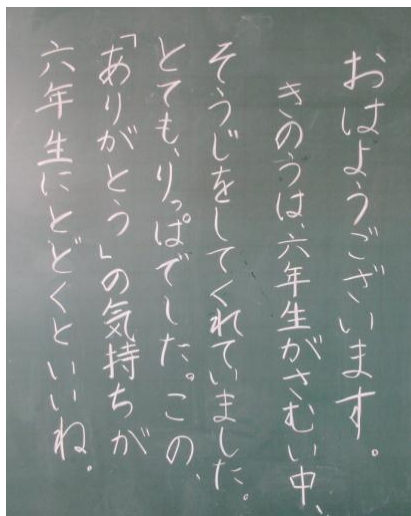 おはようございます。
きのうは、六年生がさむい中、
そうじをしてくれていました。
とても、りっぱでした。この、
「ありがとう」の気持ちが
六年生にとどくといいね。